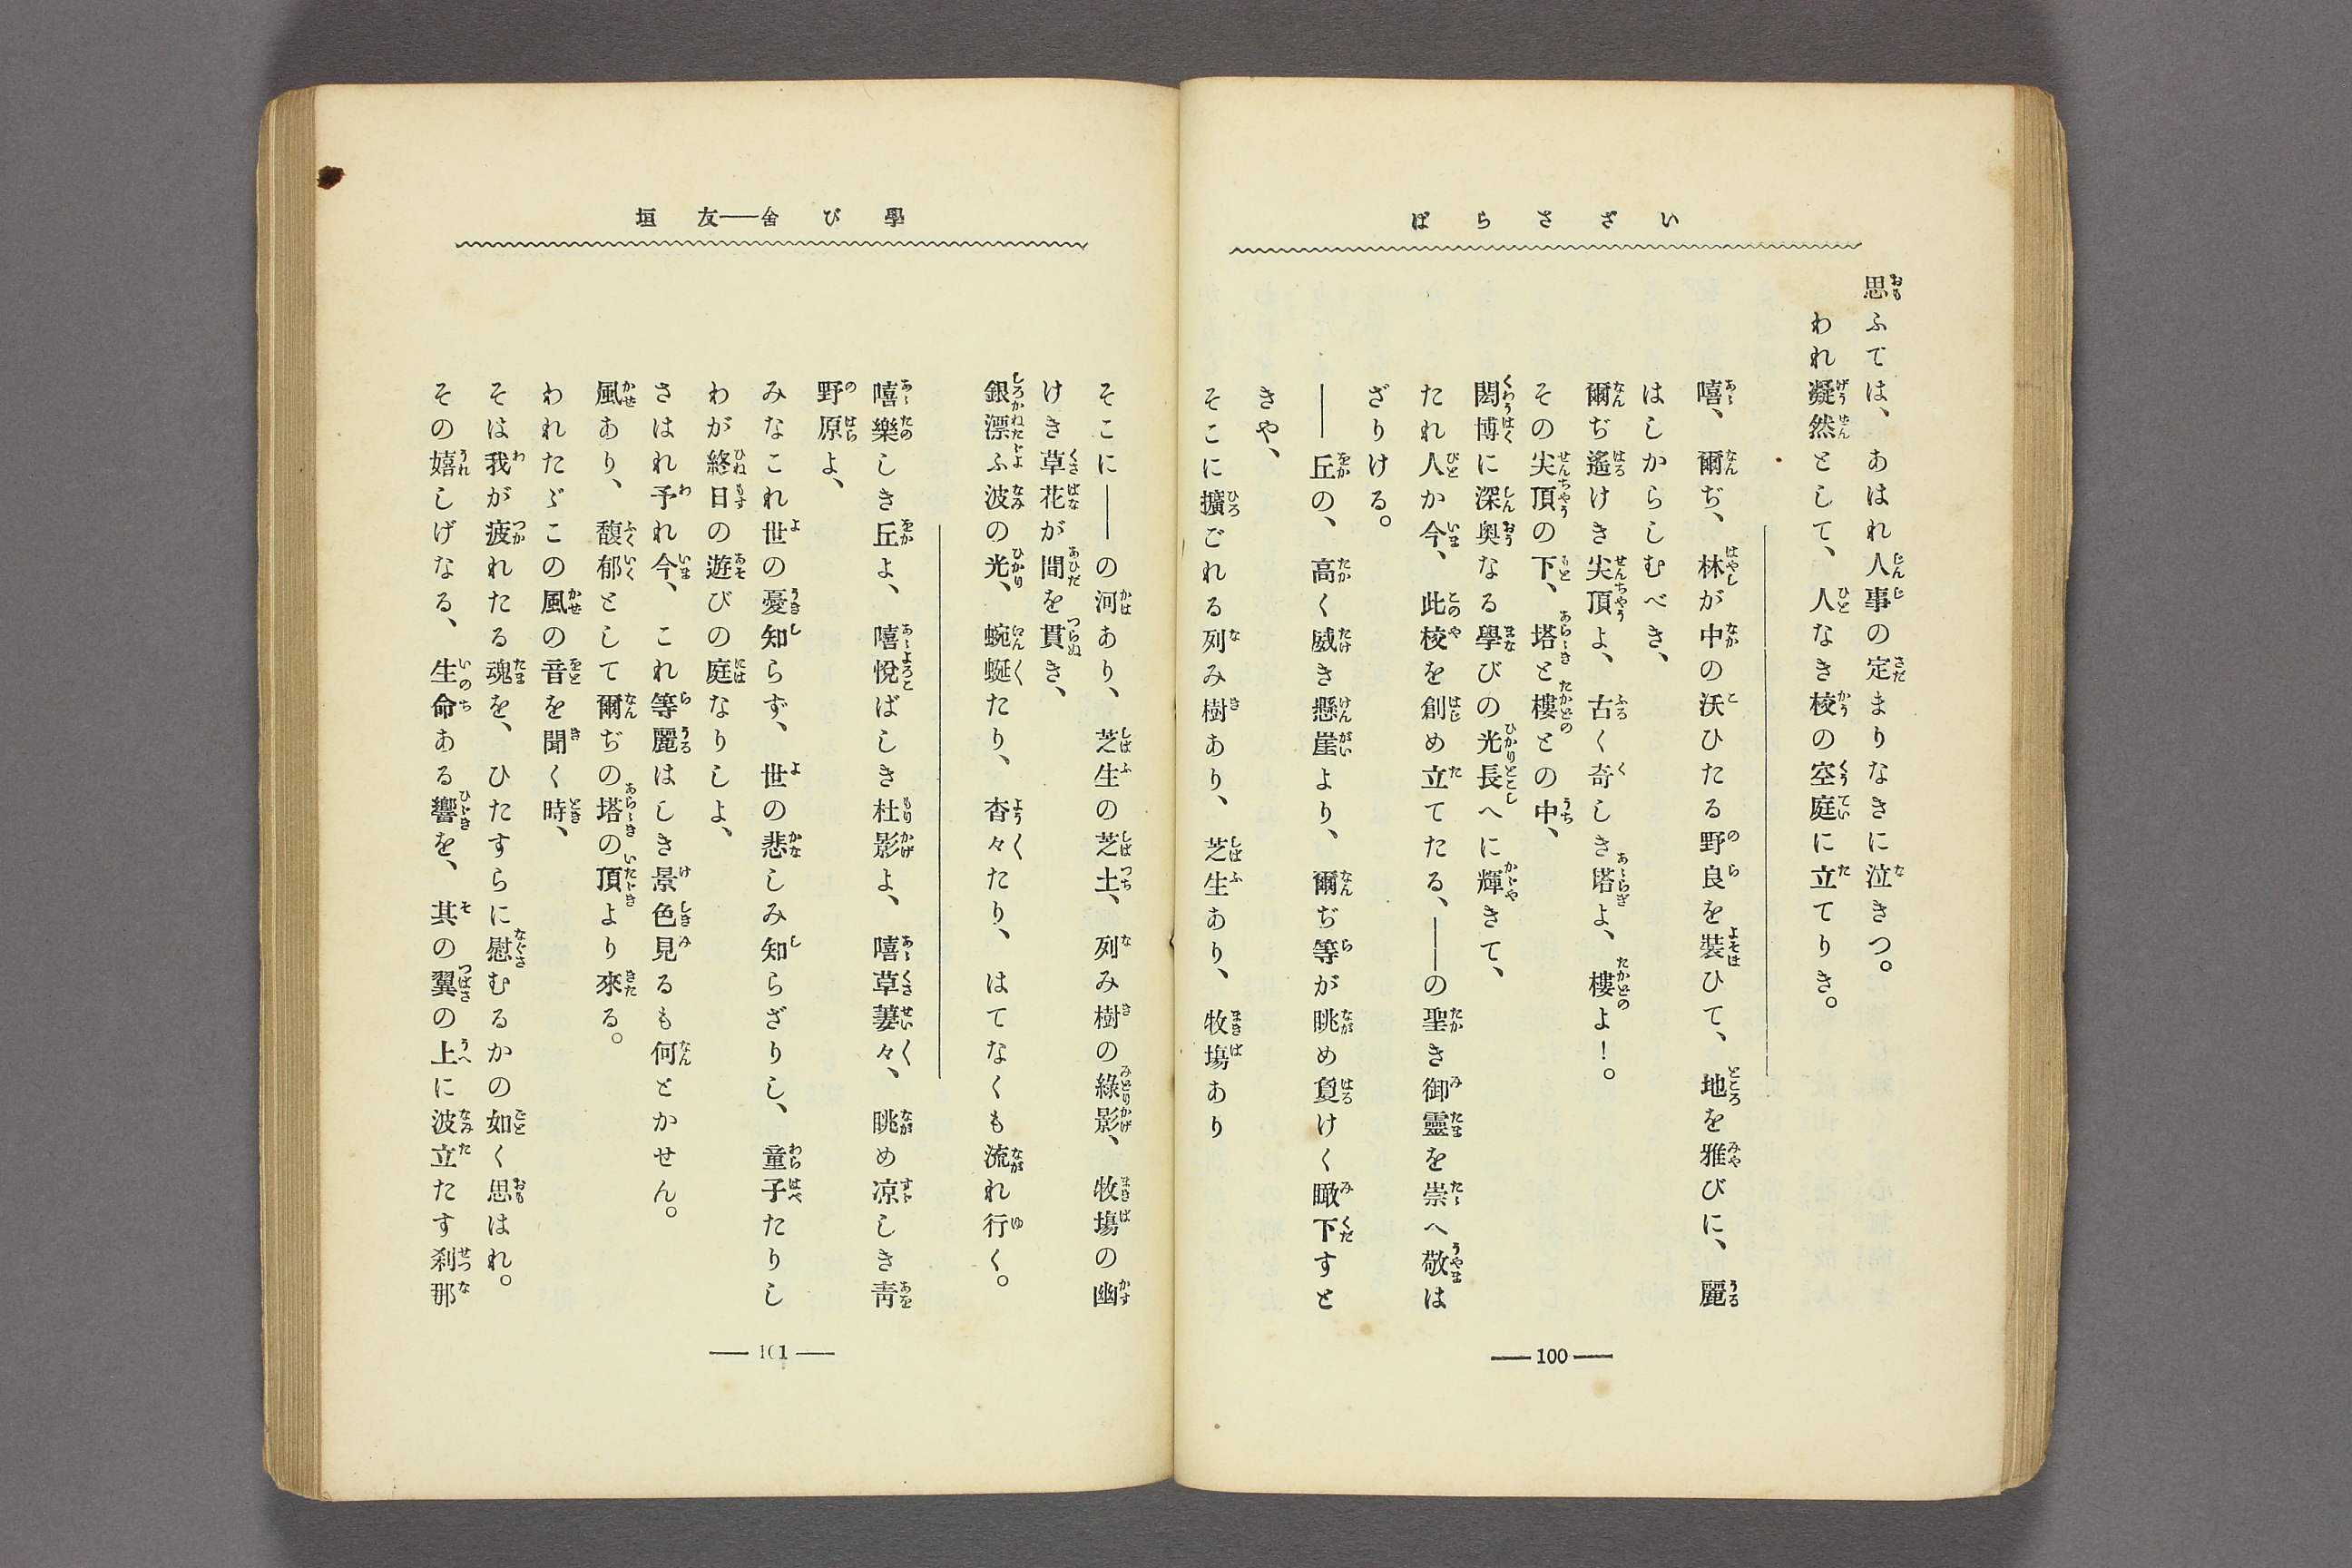 いざさらば
思ふては、あはれ人事の定まりなきに泣きつ。
われ凝然として、人なき校の空庭に立てりき。
嘻、爾ぢ、林が中の沃ひたる野良を裝ひて、地を雅びに、麗
はしからしむべき、
爾ぢ遙けき尖頂よ、古く奇しき塔よ、樓よ！。
その尖頂の下、塔と樓との中、
閎博に深奥なる學びの光長へに輝きて、
たれ人か今、此校を創め立てたる、――の聖き御靈を崇へ敬は
ざりける。
――丘の、高く威き懸崖より、爾ぢ等が眺め敻けく瞰下すと
きや、
そこに擴ごれる列み樹あり、芝生あり、牧塲あり
― 100 ―
學び舍――友垣
そこに――の河あり、芝生の芝土、列み樹の綠影、牧塲の幽
けき草花が間を貫き、
銀漂ふ波の光、蜿蜒たり、杳々たり、はてなくも流れ行く。
嘻樂しき丘よ、嘻悅ばしき杜影よ、嘻草萋々、眺め凉しき靑
野原よ、
みなこれ世の憂知らず、世の悲しみ知らざりし、童子たりし
わが終日の遊びの庭なりしよ、
さはれ予れ今、これ等麗はしき景色見るも何とかせん。
風あり、馥郁として爾ぢの塔の頂より來る。
われたゞこの風の音を聞く時、
そは我が疲れたる魂を、ひたすらに慰むるかの如く思はれ。
その嬉しげなる、生命ある響を、其の翼の上に波立たす刹那
― 101 ―